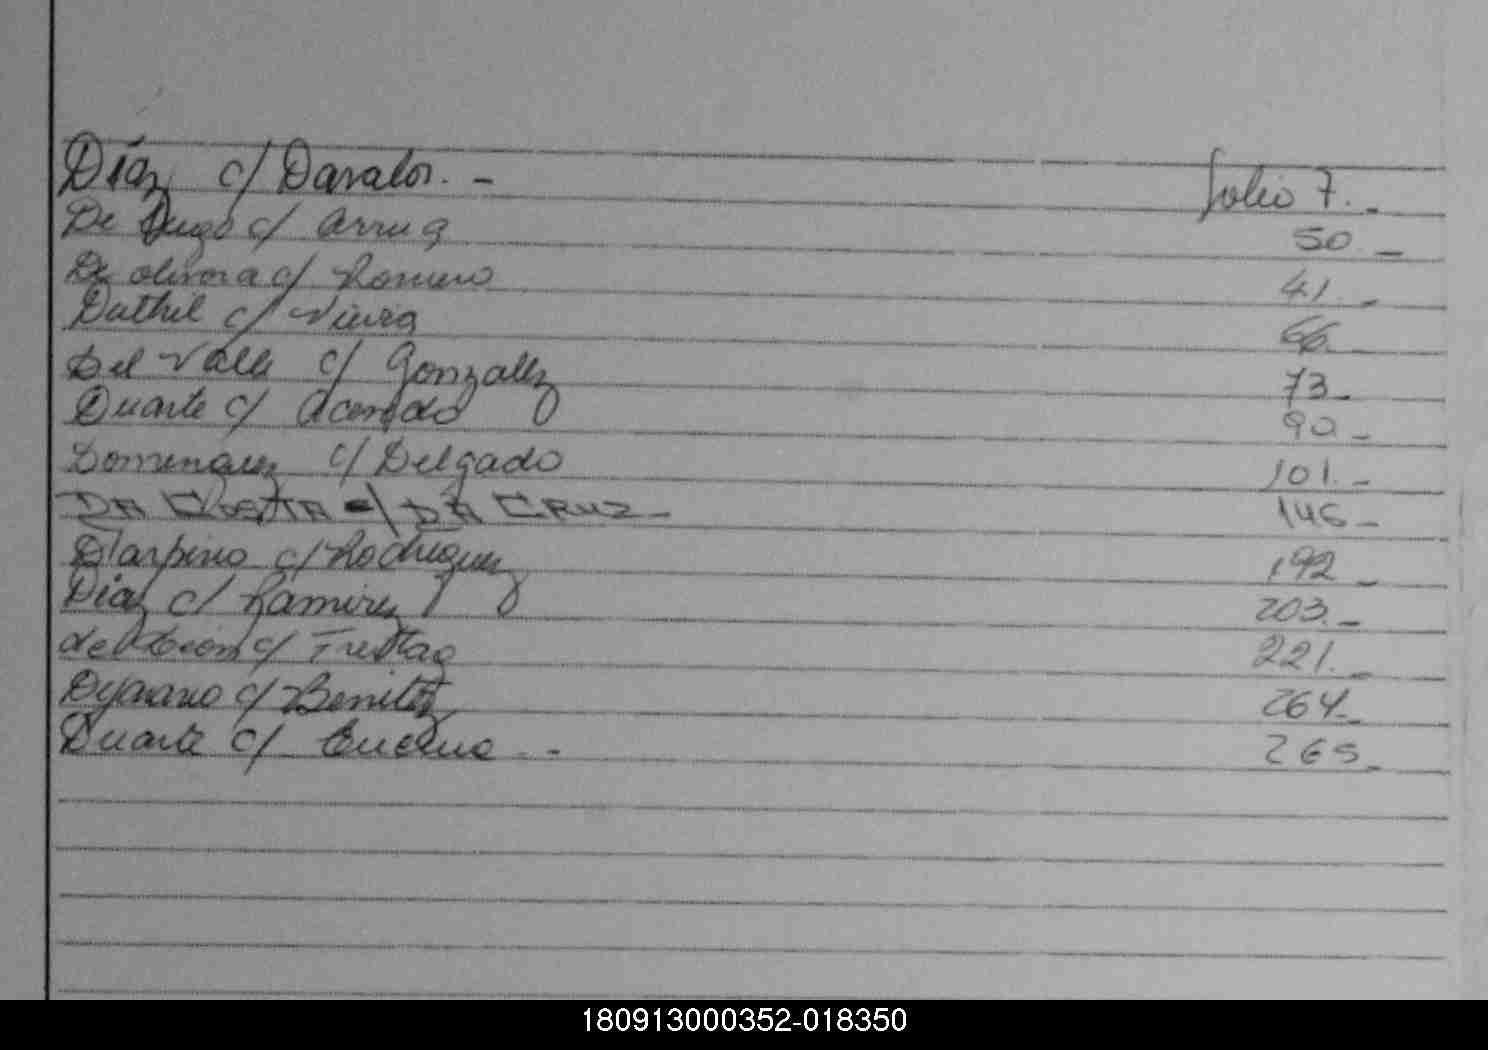 Díaz c/ Davalos. - folio 7. -
De Lugo c/ Arrua 50. -
De olivera c/ Romero 41. -
Duthil c/ Vieira 66
Del Valle c/ Gonzalez 73 -
Duarte c/ Acevedo 90 -
Dominguez c/ Delgado 101. -
DA COSTA c/ DA CRUZ - 146 -
c/ Rodriguez 192 -
Diaz c/ Ramirez 203. -
c/ Freitag 221. -
c/ Benitez 264 -
Duarte c/ . - 265 -
180913000352-018350